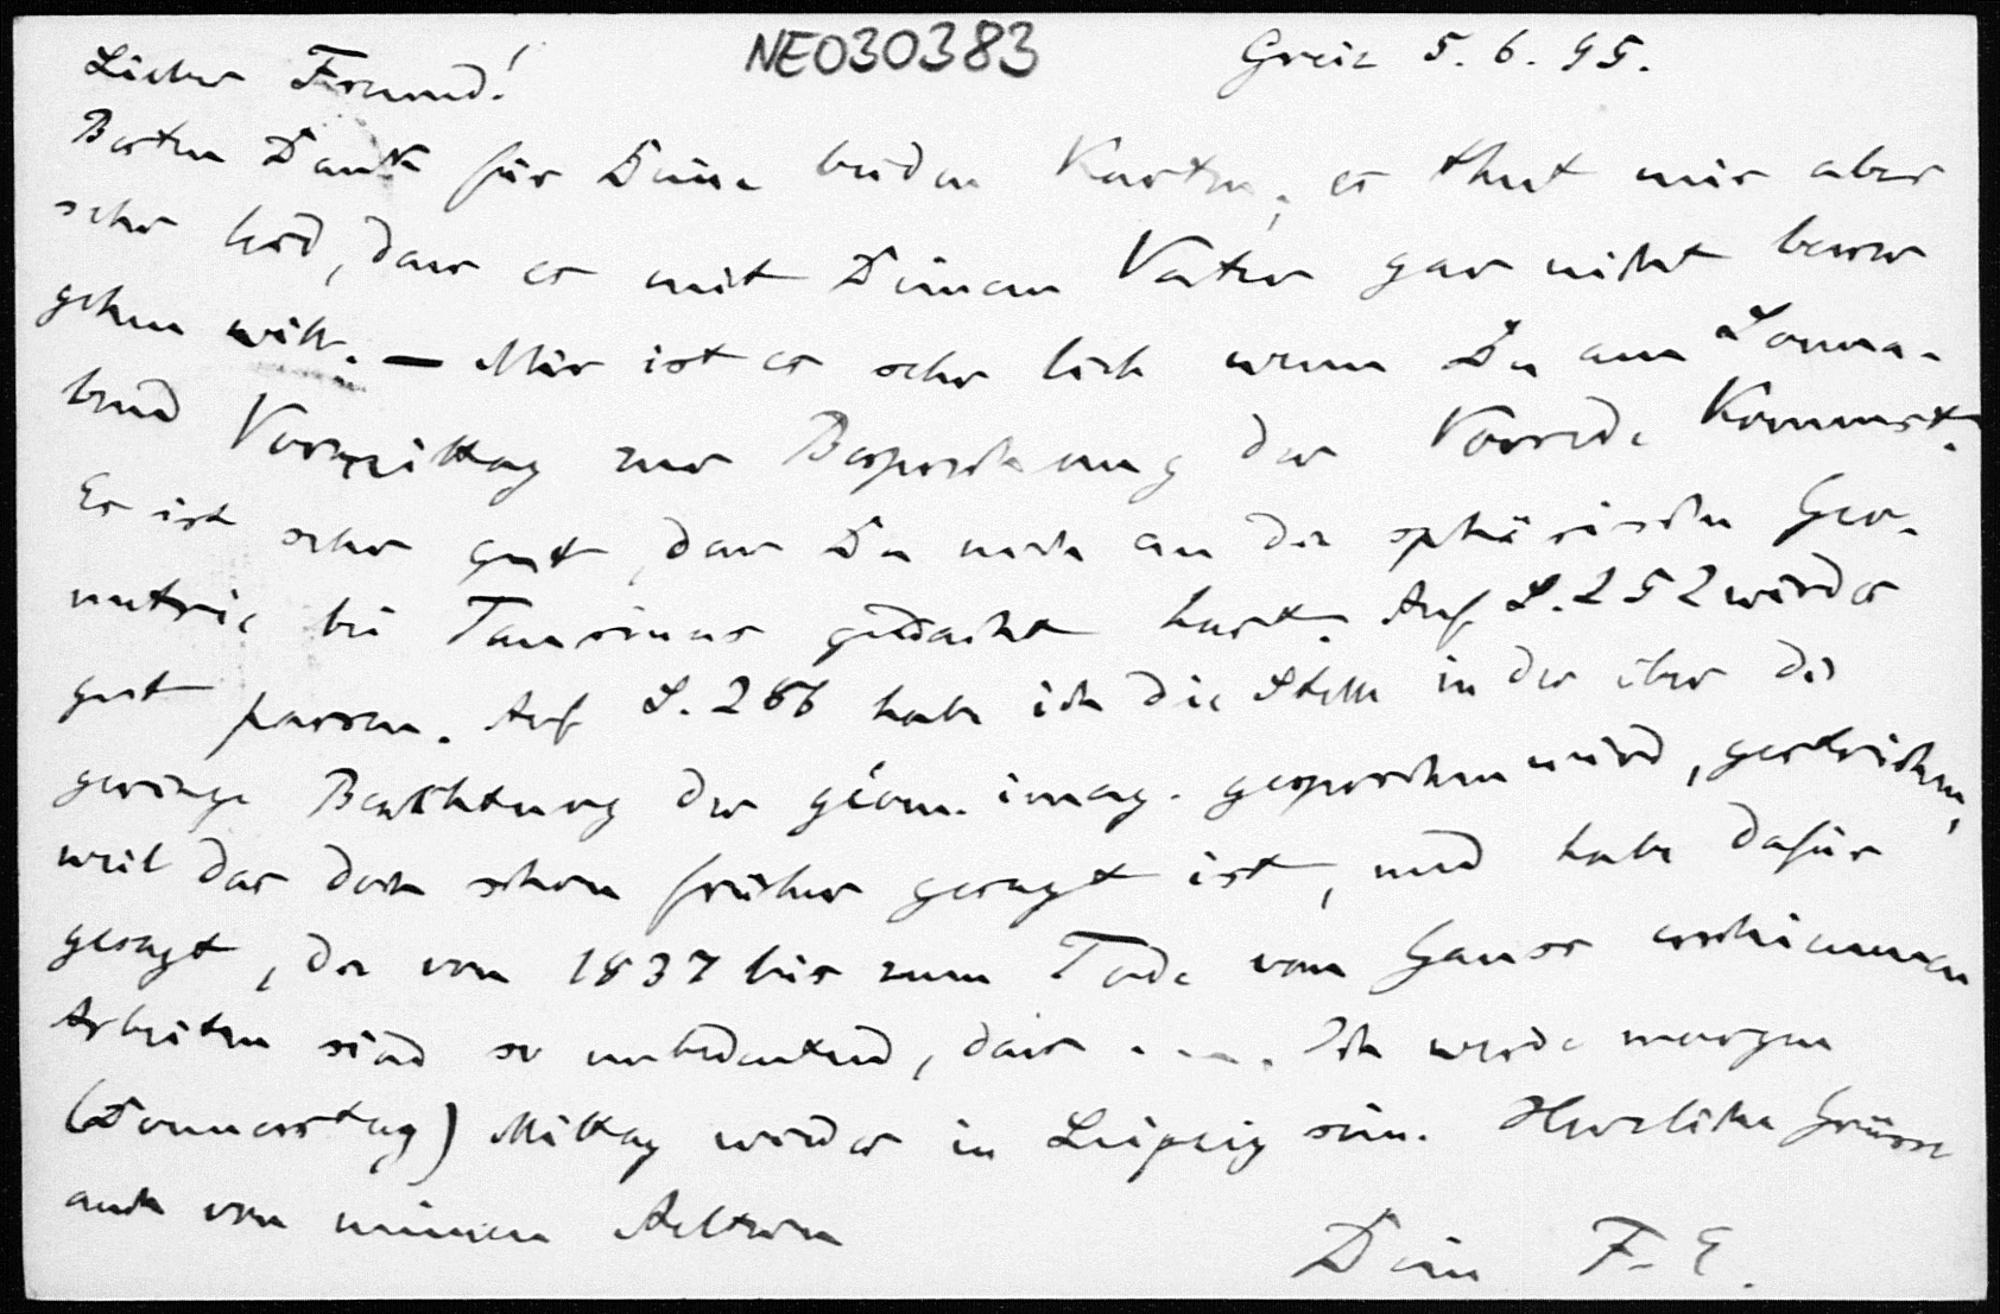 NE030383
Greiz 5. 6. 95.
Lieber Freund!
Besten Dank für Deine beiden Karten, es thut mir aber
sehr leid, dass es mit Deinem Vater gar nicht besser
gehen will. — Mir ist es sehr lieb wenn Du am Sonna-
bend Vormittag zur Besprechung der Vorrede kommst.
Es ist sehr gut, dass Du noch an die sphärischen Geo-
metrie bei Taurinus gedacht hast. Auf S. 252 wird es
gut passen. Auf S. 266 habe ich die Stelle in der über die
geringe Beachtung der géom. imag. gesprochen wird, gestrichen,
weil das doch schon früher gesagt ist, und habe dafür
gesagt, die von 1837 bis zum Tode von Gauss erschienenen
Arbeiten sind so unbedeutend, dass . . . . Ich werde morgen
(Donnerstag) Mittag wieder in Leipzig sein. Herzliche Grüsse
auch von meinen Aeltern
Dein F. E.